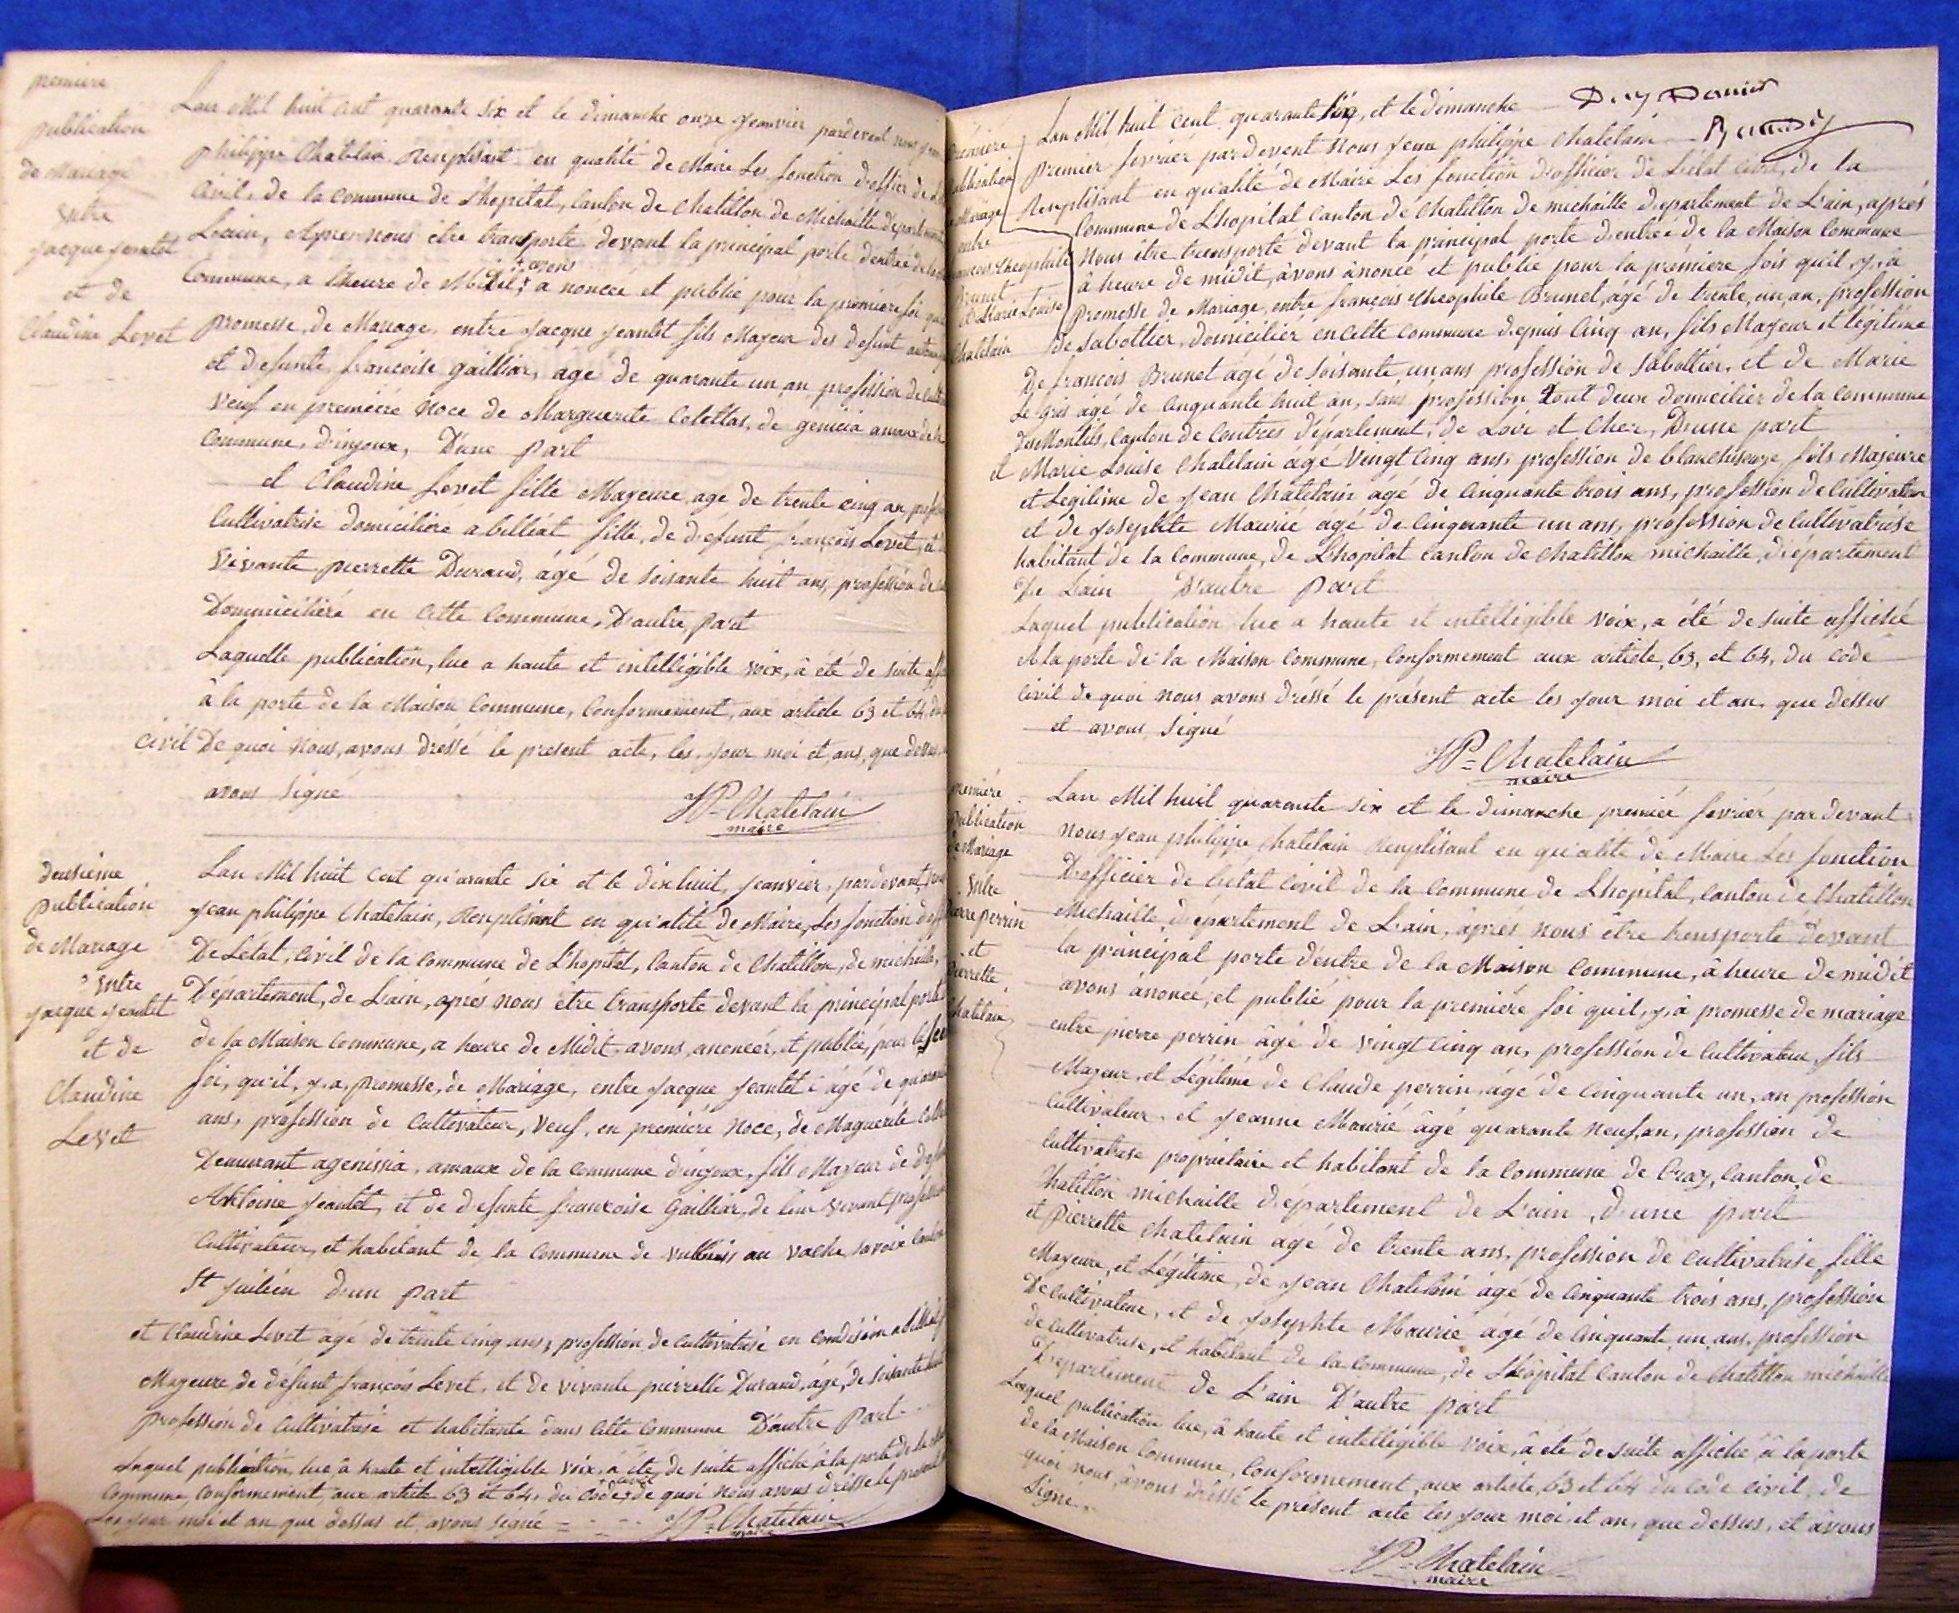 premiere
publication
de Mariage
Entre
jacque jeantet
et de
Claudine Levet
Lan Mil huit cent quarante Six et le dimanche onze Jeanvier pardevent nous
philippe Chatelain Renplisant en qualité de Maire Les fonction d'offier de
Civil, de la Commune de Lhopital, Canton de Chatillon de Michaille departement
Lain, Apres nous etre transporte devant la principal porte d'entrée de la
Commune, a lheure de Midit; avons anoncé et publié pour la premiere foi
promesse, de Mariage, entre Jacque Jeantet fils Majeur des defunt
et defunte françoise gailliar, agé de quarante un an profession de
Veuf en premiere Noce de Marguerite Colettas, de genicia amaux de la
Commune, dinjoux, D'une part
et Claudine Levet fille Majeure, age de trente cinq an
Cultivatrise domicilière a billiat fille, de defunt françois Levet, et
Vivante pierrette Durand, agé de soisante huit ans, profession de
Dommiciliéré en Cette Commune, D'autre part
Laquelle publication, lue a haute et intelligible voix, à été de suite
à la porte de la Maison Commune, Conformement, aux article 63 et 64, du
Civil De quoi Nous, avons dressé le present acte, les, jour moi et ans, que dessus
avons Signé
JP=Chatelain
maire
deusieme
publication
de Mariage
Entre
jacque jeantet
et de
Claudine
Levet
Lan Mil huit cent qu'arante Six et le dix huit, Jeanvier, pardevant,
Jean philippe Chatelain, Renplisant en qu'alité de Maire, Les fonction
De Létat, Civil de la Commune de L'hopital, Canton de Chatillon, de michaille,
Département, de Lain, aprés nous étre transporte devant la principal porte
de la Maison Commune, a heure de Midit, avons, anoncér, et publié, pour la
foi, qu'il, y, a, promesse, de Mariage, entre Jacque Jeantet agé de
ans, profession de Cultivateur, Veuf, en premiére Noce, de Maguerite
Demurant agenissia, amaux de la Commune dinjoux, fils Majeur de
Antoine Jeantet, et de defunte françoise Gailliar, de leur vivant
Cultivateur, et habitant de la Commune de vulbens au vache Savoix
St juilién d'un part
et Claudine Levet agé de trente Cinq ans, profession de Cultivatrise en Condision a
Majeure, de défunt françois Levet, et de vivante pierrette Durand, agé, de soisante
profession de Cultivatrise et habitante dans Cette Commune D'autre Part
Laquel publication, lue, à haute et intelligible Voix, à éte, de suite affiché à la porte, de la
Commune, Conformement, aux article 63 et 64, du Code civil de quoi Nous avons dréssé le present
Les jour moi et an que dessus et avons Signé
JP=Chatelain
maire
publication
Mariage
entre
françois théophile
Brunet
et Marie Louise
Chatelain
Lan Mil huit cent quarante Six, et le dimanche
Premier fevriér par devent Nous Jean philippe Chatelain
Renplisant en qu'alité de Maire Les fonction d'officier de L'état Civil, de la
Commune de L'hopital Canton dé Chatillon de michaille département de L'ain, aprés
Nous être transporté devant la principal porte d'entrée de la Maison Commune
à heure de midit, avons ânoncé et publié pour la prémiere fois quil, y, à
promesse de Mariage, entre françois theophile Brunet, agé de trente, un an, profession
de Sabottier, domiciliér en Cette Commune depuis Cinq an, fils Majeur et légitime
De françois Brunet agé de soisante un ans profession de Sabottier, et de Marie
Le Gris agé de Cinquante huit an, Sans profession Tout deux domicilier de la Commune
Des Montils, Canton de Contres département, de Loir et Cher, D'une part
et Marie Louise Chatelain agé Vingt Cinq ans, profession de blanchiseuze fils Majeure
et Légitime de Jean Chatelain âgé de Cinquante trois ans, profession de Cultivateur
et de Josephte Maurié agé de Cinquante un ans, profession de Cultivatrise
habitant de la Commune, de L'hopital Canton de Chatillon michaille, département
De L'ain D'autre Part
Laquel publication lue a haute et intelligible Voix, a été de suite affiché
A la porte de la Maison Commune, Conformement aux article, 63, et 64, du Code
Civil de quoi nous avons dréssé le présent acte les Jour moi et an, que déssus
et avons Signé
JP=Chatelain
maire
premiére
publication
de Mariage
Entre
pierre perrin
et
Pierrette
Chatelain
Lan Mil huit quarante six et le dimanche premier fevriér par devant
Nous Jean philippe Chatelain Renplisant en qu'alité de Maire Les fonction
D'officier de L'état Civil de la Commune de L'hopital, Canton de Chatillon
Michaille, département de L'ain, aprés nous être transporté devant
la principal porte d'entre de la Maison Commune, à heure de midit
avons ânoncé, et publié pour la premiére foi quil, y, à promesse de mariage
entre pierre perrin âgé de vingt Cinq an, profession de Cultivateur, fils
Majeur, et Légitime de Claude perrin, agé de Cinquante un, an profession
Cultivateur, et Jeanne Maurié âgé quarante neuf, an, profession de
Cultivatrise propriétaire et habitant de la Commune de Craz, Canton de
Chatillon michaille département de L'ain, D'une part
et Pierrette Chatelain agé de trente ans, profession de Cultivatrise fille
Majeure, et Légitime, de Jean Chatelain agé de Cinquante trois ans, profession
De Cultivateur, et de Josephte Maurié agé de Cinquante, un, ans, profession
de Cultivatrise, et habitant de la Commune, de L'hôpital Canton de Chatillon michaille
Departement de L'ain D'autre part
Laquel publication lue, à haute et intelligible voix, à éte de suite affiché à la porte
de la Maison Commune, Conformement, aux article, 63 et 64 du Code Civil, de
quoi nous, avons dréssé le présent acte les Jour moi, et an, que dessus, et avons
Signe
JP=Chatelain
maire